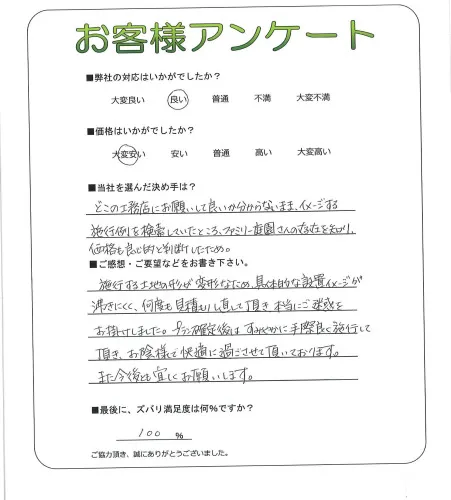 お客様アンケート
■弊社の対応はいかがでしたか？
大変良い 良い 普通 不満 大変不満
■価格はいかがでしたか？
大変安い 安い 普通 高い 大変高い
■当社を選んだ決め手は？
どこの工務店にお願いして良いか分からないまま、イメージする
施行例を検索していたところ、ファミリー庭園さんの存在を知り、
価格も良心的と判断したため。
■ご感想・ご要望などをお書き下さい。
施行する土地の形が変形なため、具体的な設置イメージが
沸きにくく、何度も見積もりし直して頂き本当にご迷惑を
お掛けしました。プラン確定後はすみやかに手際良く施行して
頂き、お陰様で快適に過ごさせて頂いております。
また今後とも宜しくお願いします。
■最後に、ズバリ満足度は何%ですか？
100 %
ご協力頂き、誠にありがとうございました。